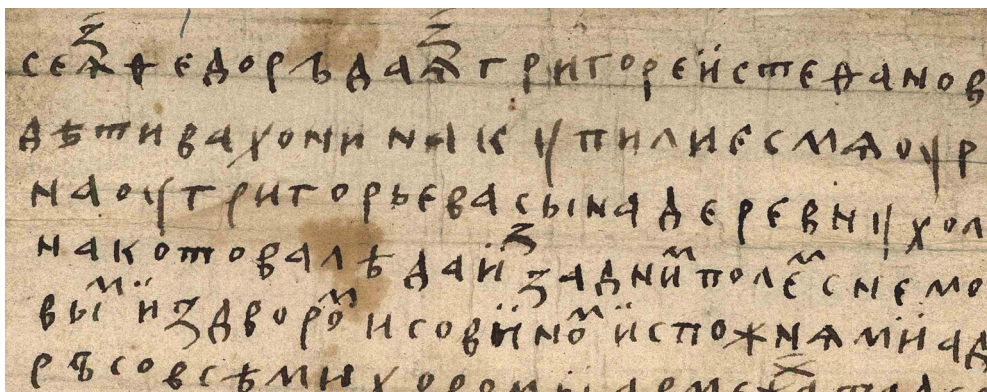 се ѧⷥ федоръ да ѧⷥ григореӥ стефанов
дѣти вахонина кꙋпили есмѧ оу р
на оу григорьева сына деревнꙋ хол
на котовалѣ да ӥⷥ заднӥⷨ полеⷨ с немо
выⷨ ӥ з двороⷨ и с овӥноⷨ ӥ с пожнѧмӥ а д
ръ со всѣми хоромы